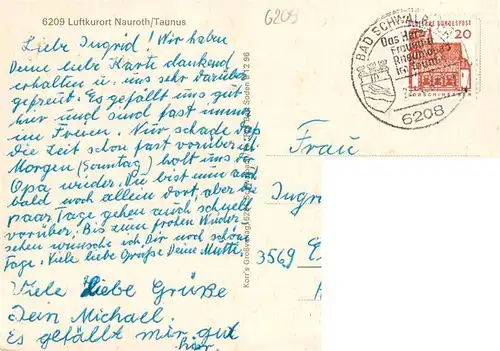 6209 Luftkurort Nauroth/Taunus
6209
Liebe Ingrid! Wir haben
Deine liebe Karte dankend
erhalten u. uns sehr darüber
gefreut. Es gefällt uns gut
hier und sind fast immer
im Freien. Nur schade daß
die Zeit schon fast vorüber ist
Morgen (Sonntag) holt uns
Opa wieder. Du bist nun auch
bald noch allein dort, aber die
paar Tage gehen auch schnell
vorüber. Bis zum frohen Wieder
sehen wünsche ich Dir noch schöne
Tage. Viele liebe Grüße Deine Mutti.
Viele liebe Grüße
Dein Michael.
Es gefällt mir gut
hier.
BAD SCHWALB
Das Herz
Frauen-
Rheuma
6208
BUNDESPOST
20
Frau
Ingr
3569